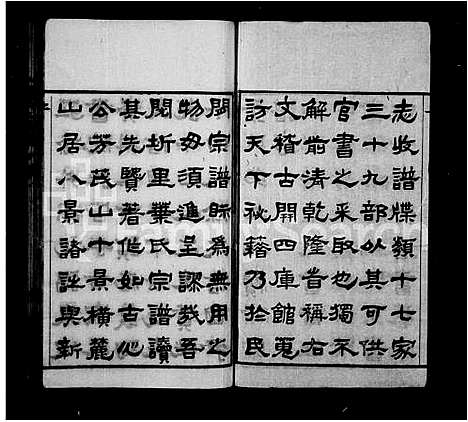 志收譜牒類十七家
三十九部以其可供
官書之采取也獨不
解前清乾隆者稱右
文稽古開四庫館蒐
訪天下秘籍乃於民
間宗譜眎為無用之
物毋須進呈認哉吾
閱圻里葉氏宗譜讀
其先賢著作如古心
公芳茂山十景橫麓
山居八景諸詠與新